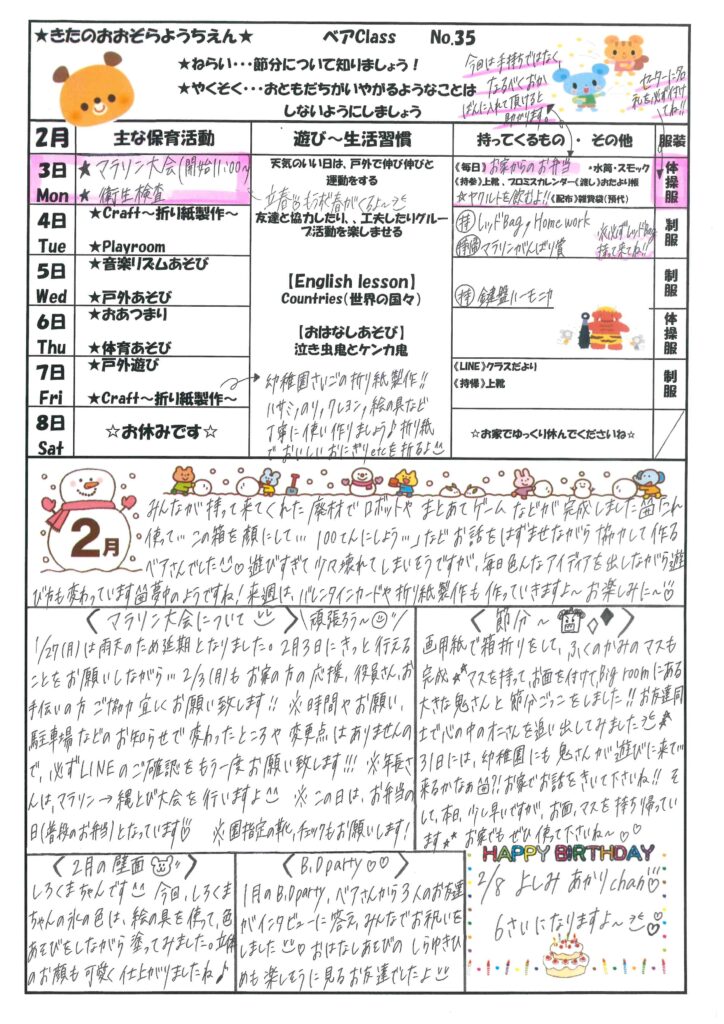 ★きたのおおぞらようちえん★ ベアClass No.35
★ねらい・・・節分について知りましょう！
★やくそく・・・おともだちがいやがるようなことは
しないようにしましょう
今回は手持ちではなく、
なるべくおか
ばんに入れて頂けると
助かります。
セーターに名
札を必ず付けて
てね!!
2月 主な保育活動 遊び～生活習慣 持ってくるもの・その他 服装
3日 Mon
★マラソン大会(開始11:00～
★衛生検査
天気のいい日は、戸外で伸び伸びと
運動をする
《毎日》お家からのお弁当 ★水筒・スモック
《持参》上靴、プロミスカレンダー《渡し》おたより帳
☆ヤクルトを飲むよ!!《配布》雑貨袋(預代)
体操服
4日 Tue
★Craft～折り紙製作～
★Playroom
友達と協力したり、、工夫したりグルー
プ活動を楽しませる
持 レッドBag, Homework
マラソンがんばり賞
※必ずレッドBag
持って来てね!!
制服
5日 Wed
★音楽リズムあそび
★戸外あそび
【English lesson】
Countries(世界の国々)
持 鍵盤ハーモニカ
制服
6日 Thu
★おあつまり
★体育あそび
【おはなしあそび】
泣き虫鬼とケンカ鬼
体操服
7日 Fri
★戸外遊び
★Craft～折り紙製作～
幼稚園さいごの折り紙製作!!
ハサミ,のり,クレヨン,絵の具など
丁寧に使い作りましょう♪折り紙
でおいしいおにぎりetcを折るよ
《LINE》クラスだより
《持帰》上靴
制服
8日 Sat
☆お休みです☆
☆お家でゆっくり休んでくださいね☆
2月
みんなが持って来てくれた廃材でロボットやまとあてゲームなどが完成しました
使って…この箱を顔にして…100てんにしよう…」などお話をはずませながら協力して作る
ベアさんでした♡遊びすぎて少々壊れてしまいそうですが、毎日色んなアイディアを出しながら遊
び方も変わっています 夢中のようですね！来週は、バレンタインカードや折り紙製作も作っていきますよ～お楽しみに～♡
〈マラソン大会について 〉頑張ろう～
1/27(月)は雨天のため延期となりました。2月3日にきっと行える
ことをお願いしながら… 2/3(月)もお家の方の応援、役員さん、お
手伝いの方ご協力宜しくお願い致します!! ※時間やお願い、
駐車場などのお知らせで変わったところや変更点はありませんの
で、必ずLINEのご確認をもう一度お願い致します!!! ※年長さ
んは、マラソン→縄とび大会を行いますよ ※この日は、お弁当の
日(普段のお弁当)となっています ※園指定の靴,チェックもお願いします！
〈節分～ 〉
画用紙で箱折りをして、ふくのかみのマスも
完成 マスを持って、お面を付けて、Big roomにある
大きな鬼さんと節分ごっこをしました!!お友達同
士で心の中のオニさんを追い出してみました
31日には、幼稚園にも鬼さんが遊びに来て
来るかなぁ?!お家でお話をきいて下さいね!! そ
して、本日、少し早いですが、お面、マスを持ち帰ってい
ます お家でもぜひ使って下さいね～♡♡
〈2月の壁面 〉
しろくまちゃんです 今回、しろくま
ちゃんの氷の色は、絵の具を使って、色
あそびをしながら塗ってみました。立体
のお顔も可愛く仕上がりましたね♪
〈B.D party♡♡〉
1月のB.Dparty、ベアさんから3人のお友達
がインタビューに答え、みんなでお祝いを
しました おはなしあそびのしらゆきひ
めも楽しそうに見るお友達でしたよ
HAPPY BIRTHDAY
2/8 よしみ あかりchan
6さいになりますよ～